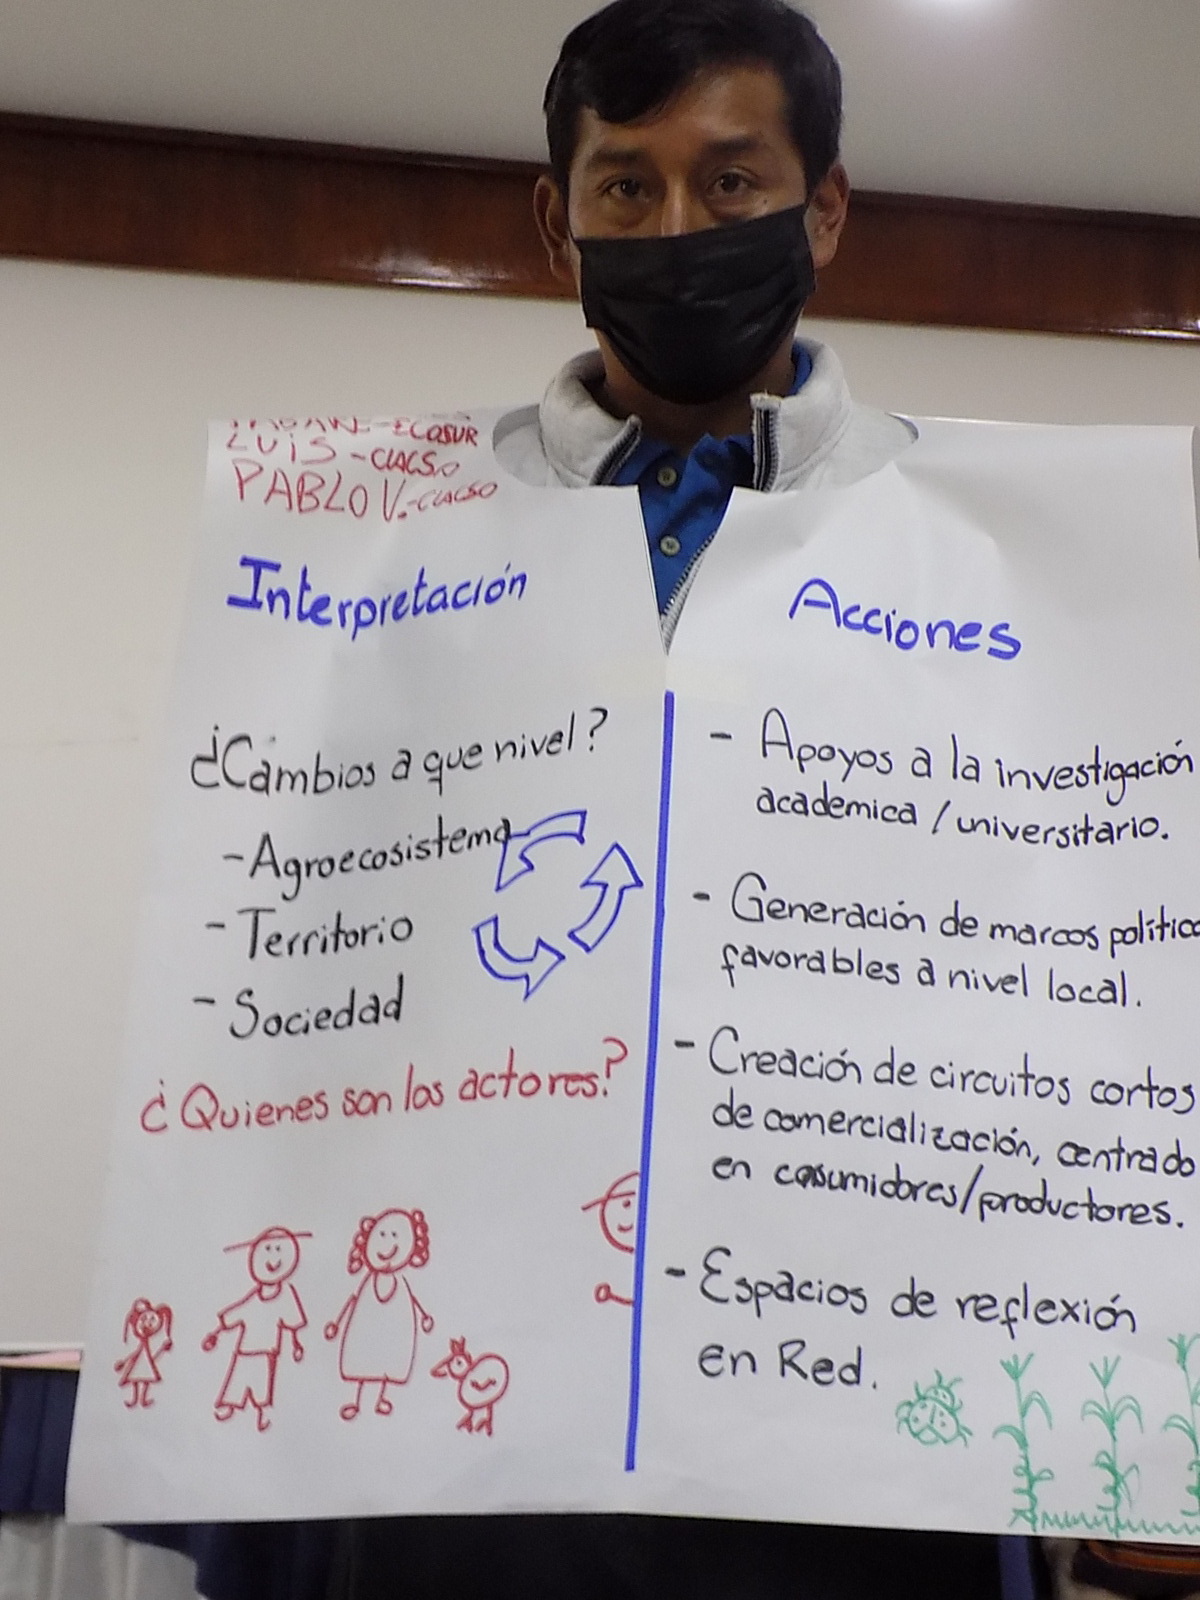 ECOSUR
LUIS - CLACSO
PABLO V. - CLACSO
Interpretación
¿Cambios a que nivel?
- Agroecosistema
- Territorio
- Sociedad
¿Quienes son los actores?
Acciones
- Apoyos a la investigación
academica / universitario.
- Generación de marcos
favorables a nivel local.
- Creación de circuitos cortos
de comercialización, centrado
en cosumidores/productores.
- Espacios de reflexión
en Red.